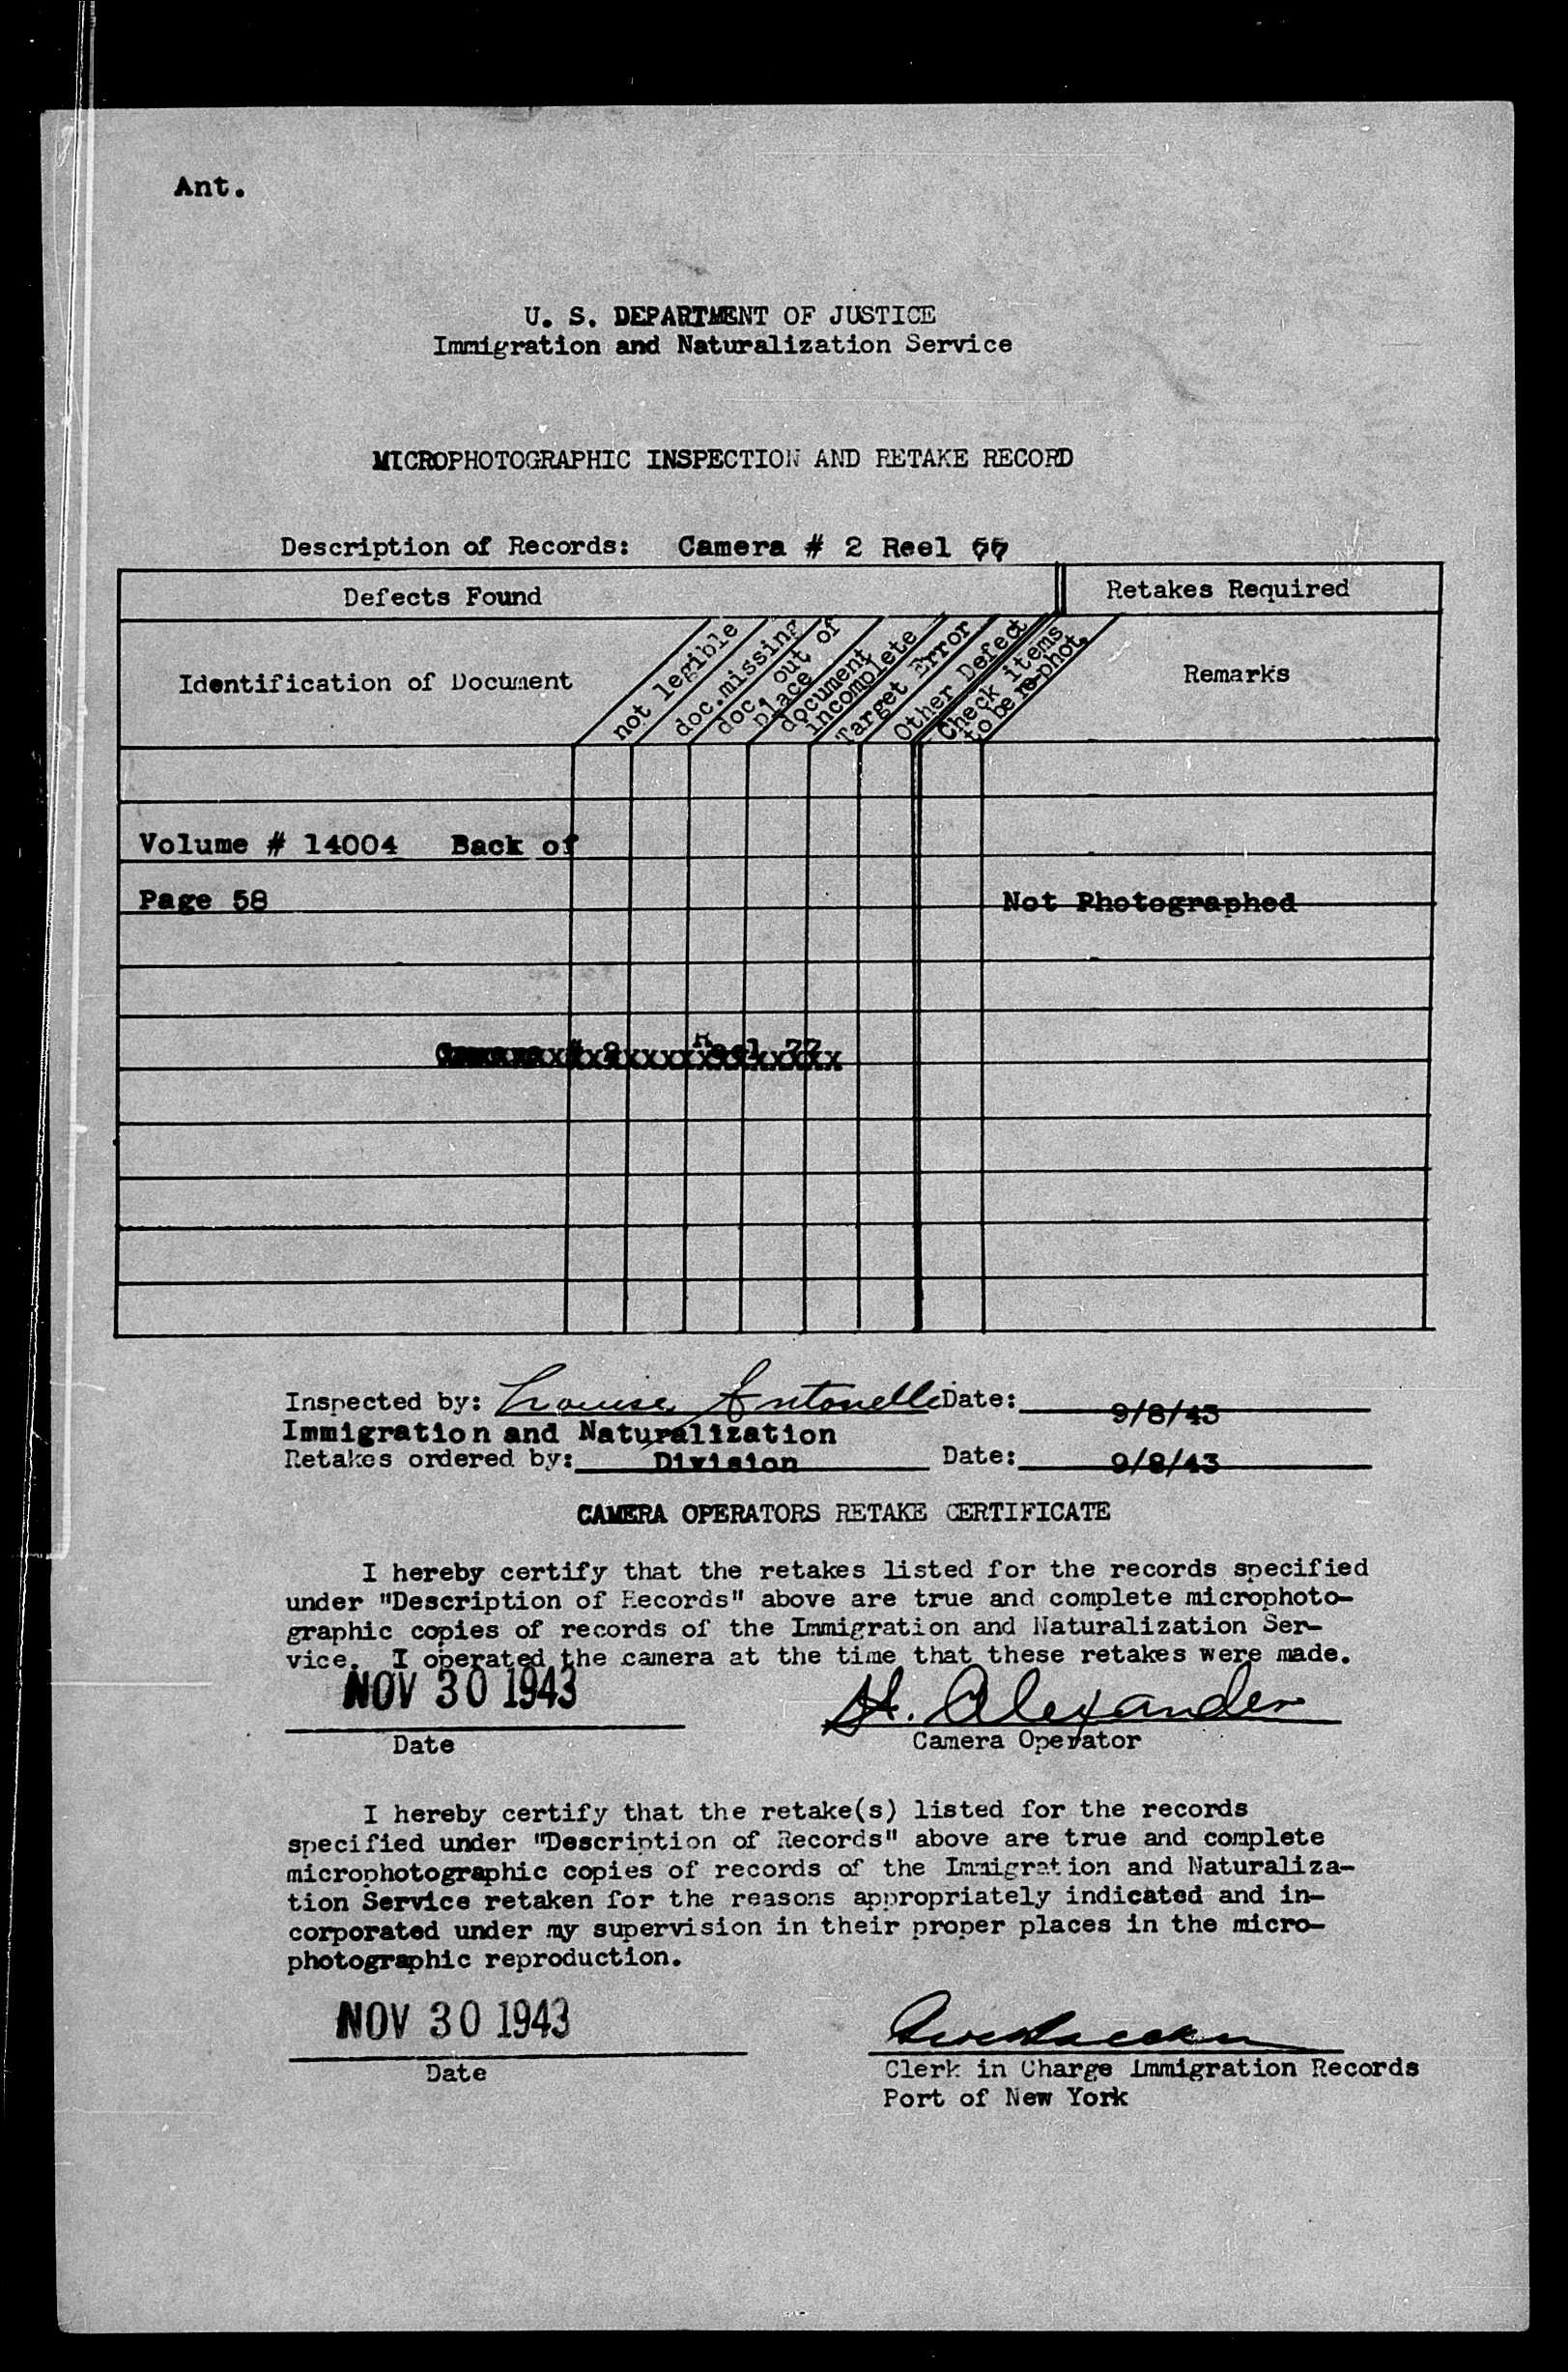 Ant.
U. S. DEPARTMENT OF JUSTICE
Immigration and Naturalization Service
MICROPHOTOGRAPHIC INSPECTION AND RETAKE RECORD
Description of Records: Camera # 2 Reel
Defects Found
Retakes Required
Identification of Document
not legible
doc.missing
doc out of
place
document
incomplete
Target Error
Other Defect
Check items
to be re-phot.
Remarks
Volume # 14004 Back of
Page 58
Not Photographed
Inspected by: Louise Antonelli Date: 9/8/43
Immigration and Naturalization
Retakes ordered by: Division Date: 9/8/43
CAMERA OPERATORS RETAKE CERTIFICATE
I hereby certify that the retakes listed for the records specified
under "Description of Records" above are true and complete microphoto-
graphic copies of records of the Immigration and Naturalization Ser-
vice. I operated the camera at the time that these retakes were made.
NOV 30 1943
H. Alexander
Date
Camera Operator
I hereby certify that the retake(s) listed for the records
specified under "Description of Records" above are true and complete
microphotographic copies of records of the Immigration and Naturaliza-
tion Service retaken for the reasons appropriately indicated and in-
corporated under my supervision in their proper places in the micro-
photographic reproduction.
NOV 30 1943
Date
Clerk in Charge Immigration Records
Port of New York